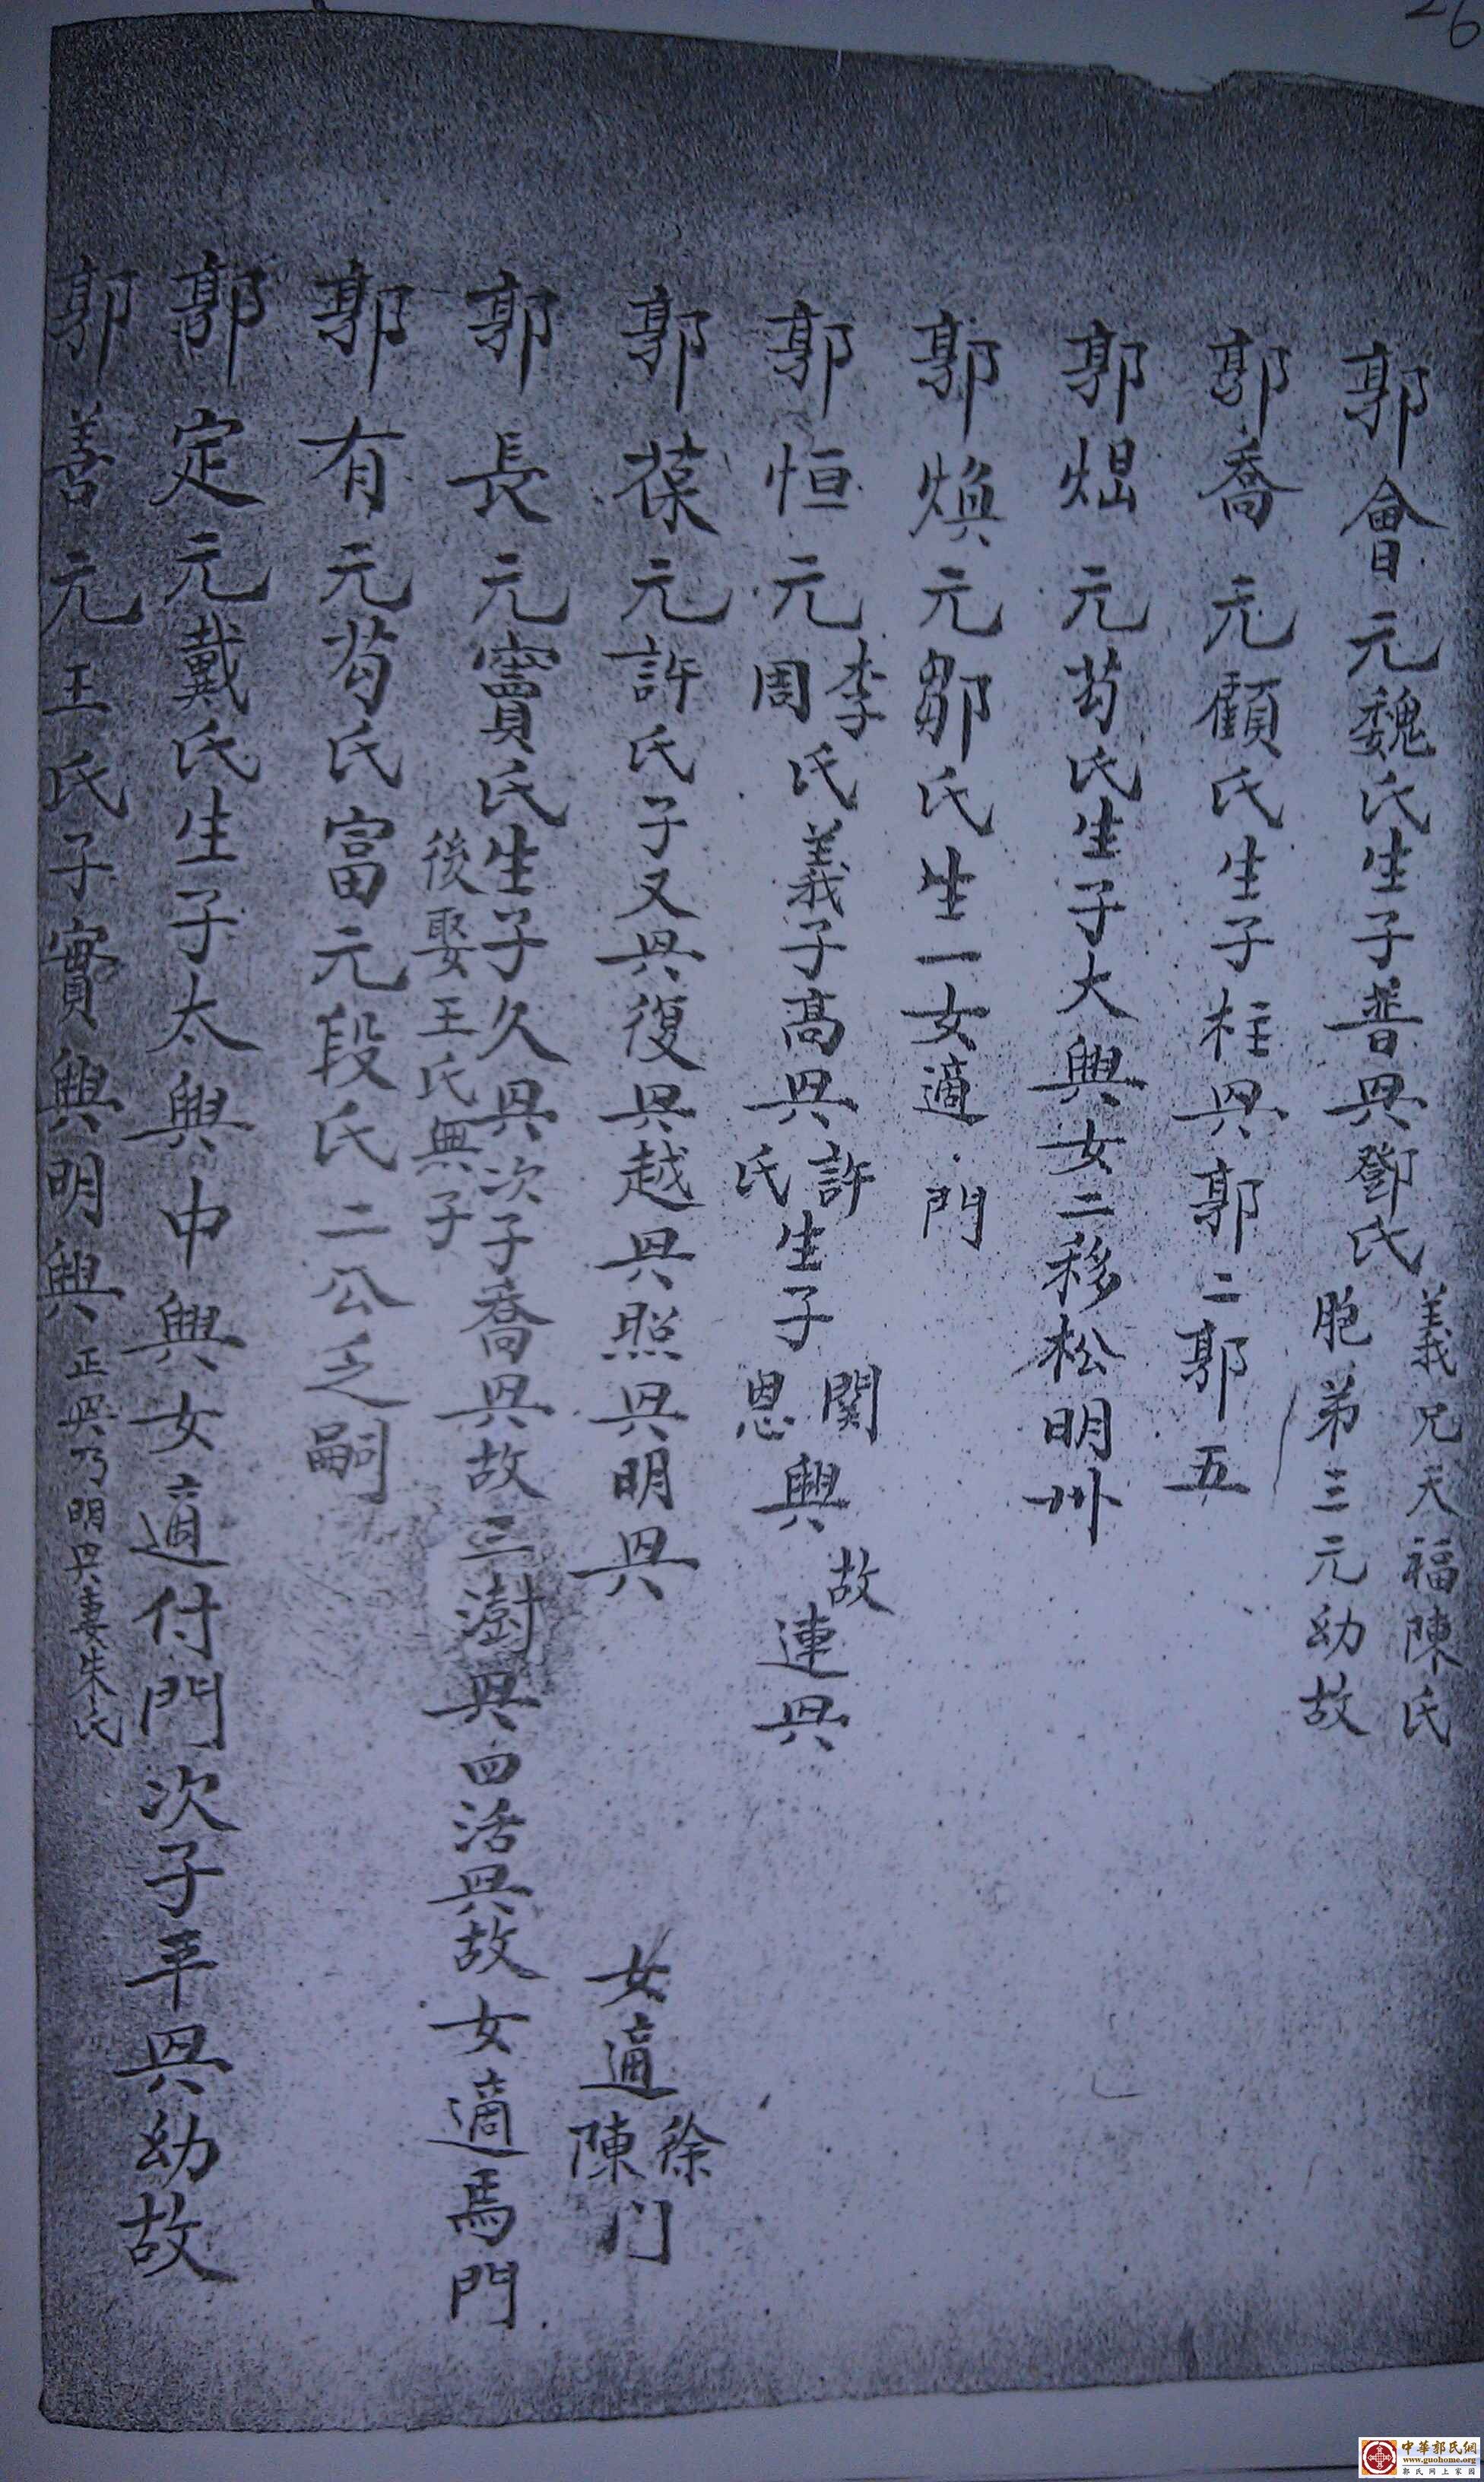 26
郭會元魏氏生子普興鄧氏
義兄天福陳氏
胞弟三元幼故
郭喬元顧氏生子柱興郭二郭五
郭焜元芶氏生子大興女二移松明卅
郭煥元鄒氏生一女適門
郭恒元李周氏義子高興許氏生子関恩興故連興
郭葆元許氏子又興復興越興照興明興女適徐陳门
郭長元竇氏生子久興次子喬興故三澍興四活興故女適馬門
後娶王氏無子
郭有元芶氏富元段氏二公乏嗣
郭定元戴氏生子太興中興女適付門次子平興幼故
郭善元王氏子實興明興正興乃明興妻朱氏
中華郭氏網
www.guohome.org
郭氏网上家园